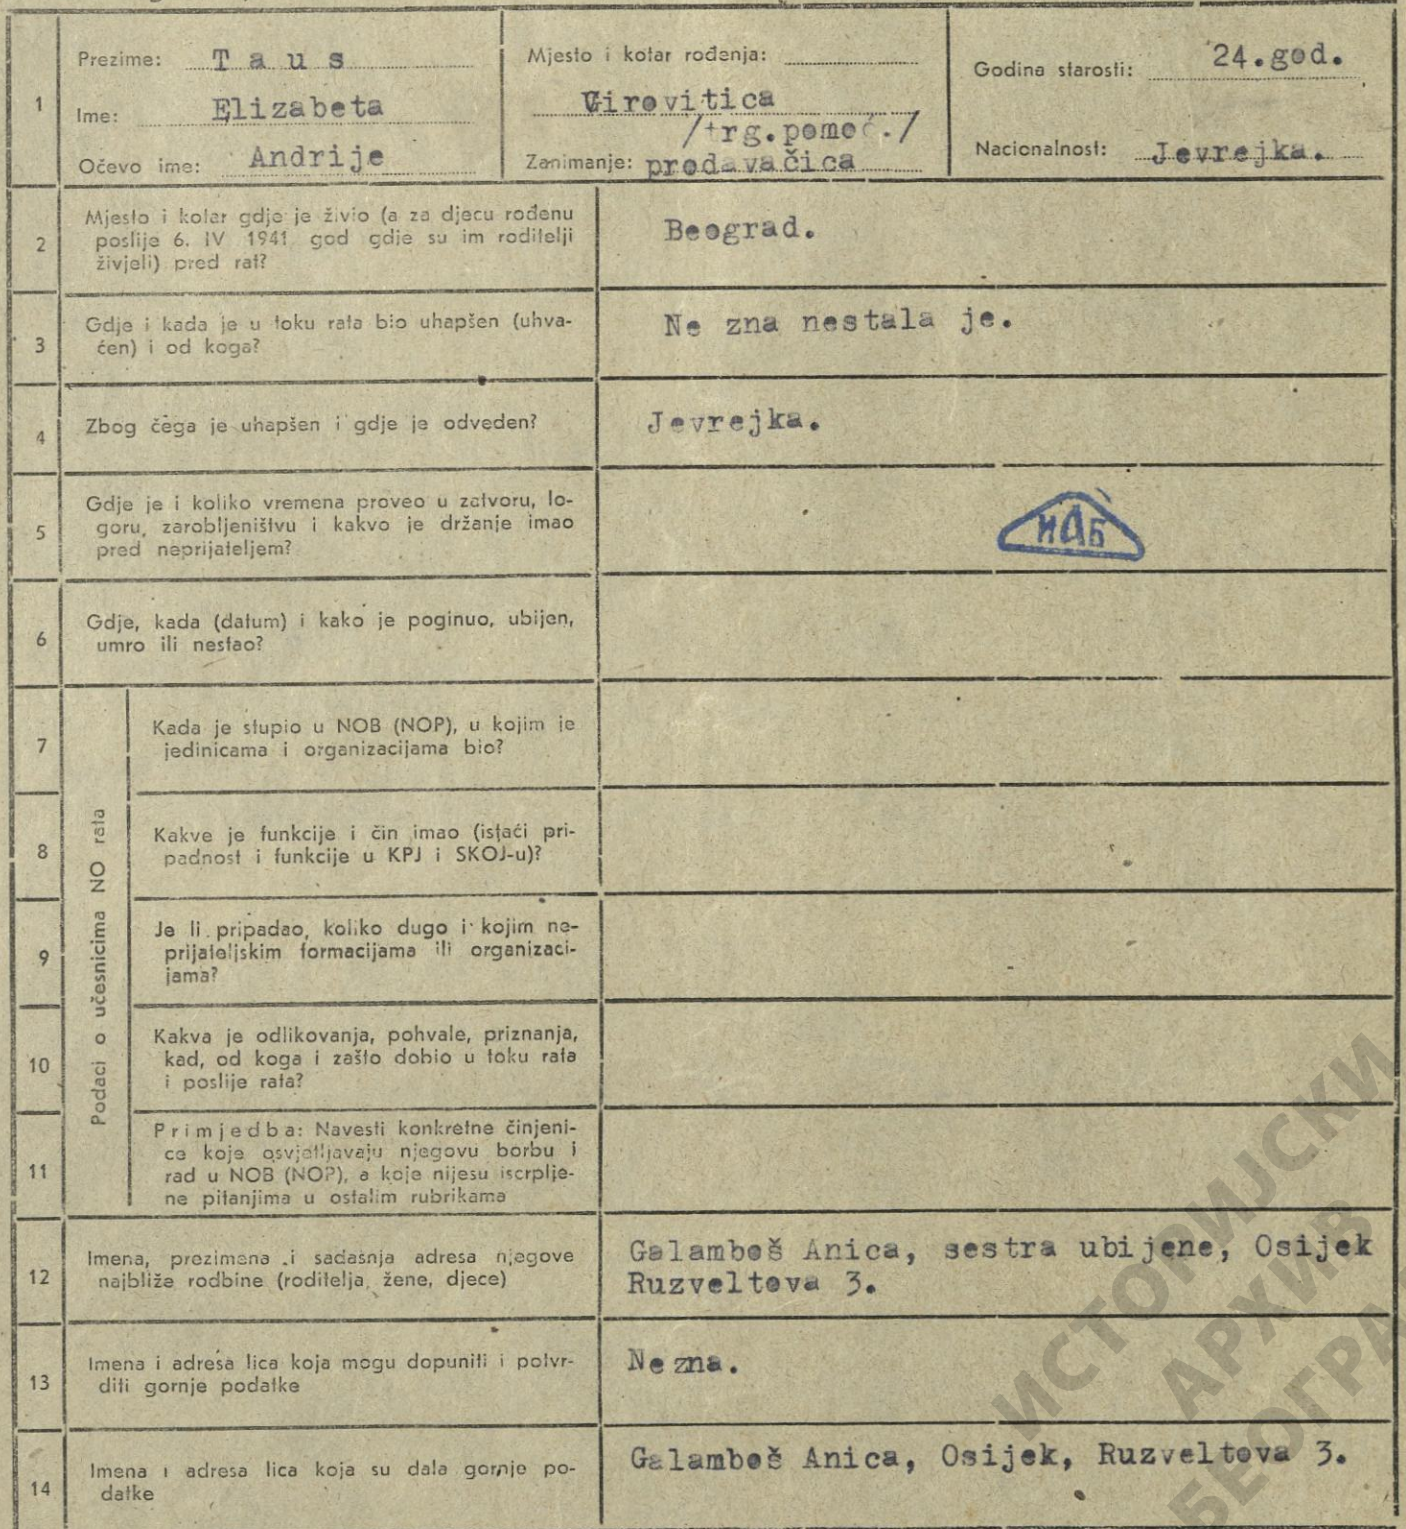 1
Prezime: Taus
Ime: Elizabeta
Očevo ime: Andrije
Mjesto i kotar rođenja:
Virovitica
/trg.pomoć./
Zanimanje: prodavačica
Godina starosti: 24.god.
Nacionalnost: Jevrejka.
2
Mjesto i kotar gdje je živio (a za djecu rođenu
poslije 6. IV 1941 god gdje su im roditelji
živjeli) pred rat?
Beograd.
3
Gdje i kada je u toku rata bio uhapšen (uhva-
ćen) i od koga?
Ne zna nestala je.
4
Zbog čega je uhapšen i gdje je odveden?
Jevrejka.
5
Gdje je i koliko vremena proveo u zatvoru, lo-
goru, zarobljeništvu i kakvo je držanje imao
pred neprijateljem?
ИАБ
6
Gdje, kada (datum) i kako je poginuo, ubijen,
umro ili nestao?
Podaci o učesnicima NO rata
7
Kada je stupio u NOB (NOP), u kojim je
jedinicama i organizacijama bio?
8
Kakve je funkcije i čin imao (istaći pri-
padnost i funkcije u KPJ i SKOJ-u)?
9
Je li pripadao, koliko dugo i kojim ne-
prijateljskim formacijama ili organizaci-
jama?
10
Kakva je odlikovanja, pohvale, priznanja,
kad, od koga i zašto dobio u toku rata
i poslije rata?
11
Primjedba: Navesti konkretne činjeni-
ce koje osvjetljavaju njegovu borbu i
rad u NOB (NOP), a koje nijesu iscrplje-
ne pitanjima u ostalim rubrikama
12
Imena, prezimena i sadašnja adresa njegove
najbliže rodbine (roditelja, žene, djece)
Galamboš Anica, sestra ubijene, Osijek
Ruzveltova 3.
13
Imena i adresa lica koja mogu dopuniti i potvr-
diti gornje podatke
Ne zna.
14
Imena i adresa lica koja su dala gornje po-
datke
Galamboš Anica, Osijek, Ruzveltova 3.
ИСТОРИЈСКИ
АРХИВ